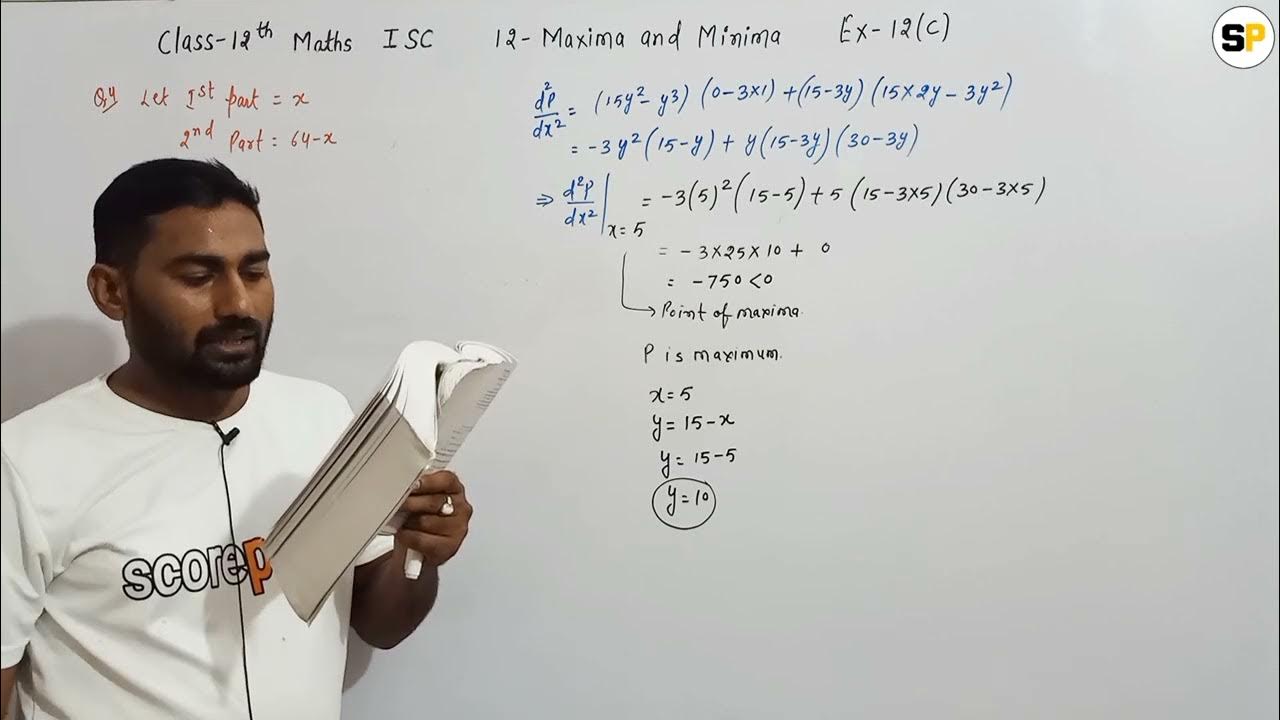 Class-12th Maths ISC 12-Maxima and Minima Ex-12(C)
SP
Q4 Let Ist part = x
2nd Part = 64-x
d²P/dx² = (15y²-y³) (0-3×1) + (15-3y) (15×2y-3y²)
= -3y²(15-y) + y(15-3y) (30-3y)
⇒ d²P/dx²|x=5 = -3(5)²(15-5) + 5 (15-3×5) (30-3×5)
= -3×25×10 + 0
= -750<0
→ Point of maxima.
P is maximum.
x=5
y=15-x
y=15-5
y=10
scorep